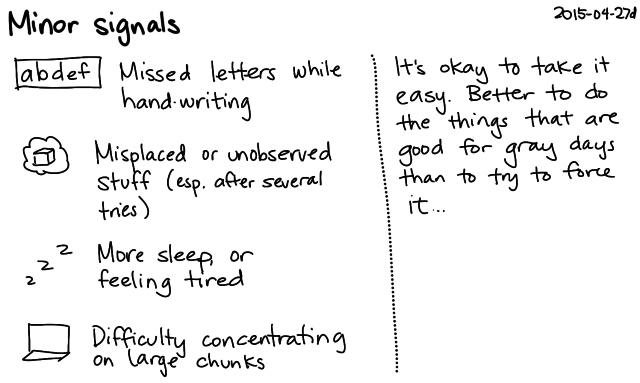 Minor signals
2015-04-27d
abdef
Missed letters while
hand-writing
Misplaced or unobserved
stuff (esp. after several
tries)
z z z
More sleep, or
feeling tired
Difficulty concentrating
on large chunks
It's okay to take it
easy. Better to do
the things that are
good for gray days
than to try to force
it...